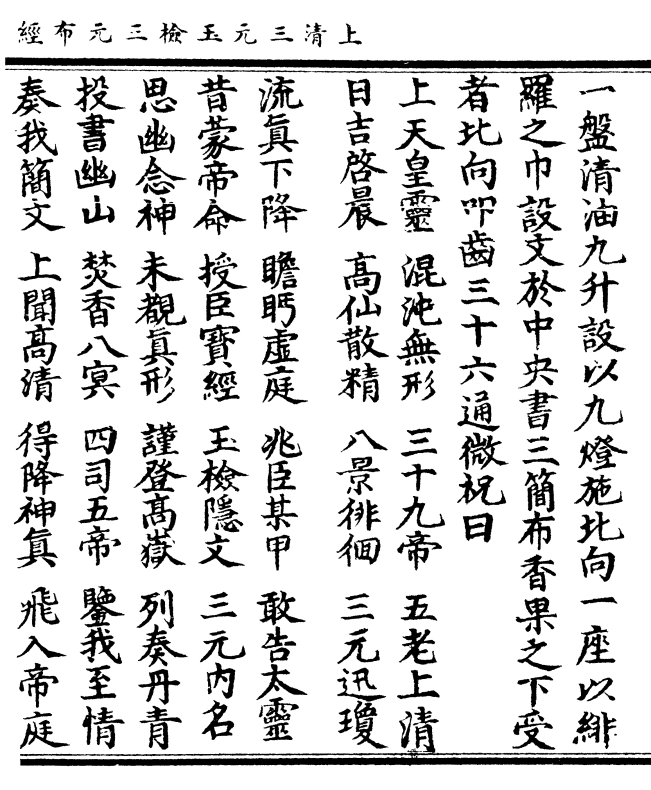 上清三元玉檢三元布經
一盤清油九升設以九燈施北向一座以緋
羅之巾設文於中央書三簡布香果之下受
者北向叩齒三十六通微祝曰
上天皇靈　混沌無形　三十九帝　五老上清
日吉啓晨　高仙散精　八景徘徊　三元迅瓊
流真下降　瞻眄虛庭　兆臣某甲　敢告太靈
昔蒙帝命　授臣寶經　玉檢隱文　三元內名
思幽念神　未覩真形　謹登高嶽　列奏丹青
投書幽山　焚香八冥　四司五帝　鑒我至情
奏我簡文　上聞高清　得降神真　飛入帝庭